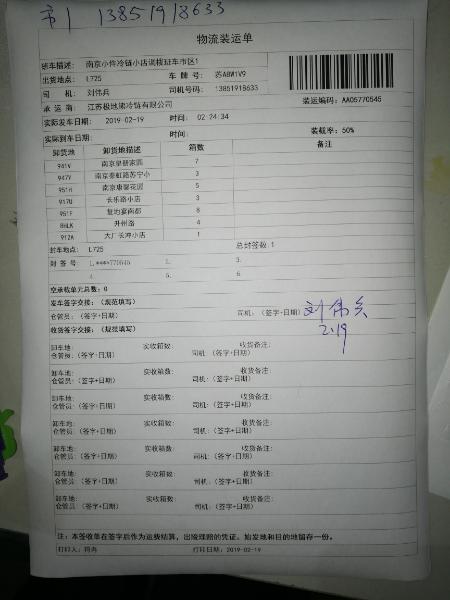 市1 13851918633
物流装运单
班车描述: 南京小件冷链小店调拨班车市区1
出货地点: L725 车牌号: 苏A8W1V9
司机: 刘伟兵 司机号码: 13851918633
承运商: 江苏极地熊冷链有限公司 装运编码: AA05770545
实际发车日期: 2019-02-19 时间: 02:24:34
实际到车日期: 时间: 装载率: 50%
卸货地 卸货地描述 箱数 备注
941V 南京皇册家园 7
947V 南京泰虹路苏宁小 3
951H 南京康馨花园 5
917U 长乐路小店 3
951F 复地宴南都 8
86LK 升州路 4
912A 大厂长冲小店 1
封车地点: L725 总封签数:1
封签号 1.****770545 2. 3.
4. 5. 6.
空承载单元总数: 0
发车签字交接: (规范填写)
仓管员: (签字+日期) 司机: (签字+日期) 刘伟兵
2.19
收货签字交接: (规范填写)
卸车地: 实收箱数: 收货备注:
仓管员: (签字+日期) 司机: (签字+日期)
卸车地: 实收箱数: 收货备注:
仓管员: (签字+日期) 司机: (签字+日期)
卸车地: 实收箱数: 收货备注:
仓管员: (签字+日期) 司机: (签字+日期)
卸车地: 实收箱数: 收货备注:
仓管员: (签字+日期) 司机: (签字+日期)
卸车地: 实收箱数: 收货备注:
仓管员: (签字+日期) 司机: (签字+日期)
卸车地: 实收箱数: 收货备注:
仓管员: (签字+日期) 司机: (签字+日期)
注: 本签收单在签字后作为运费结算, 出险理赔的凭证。始发地和目的地留存一份。
打印人: 符冉 打印日期: 2019-02-19